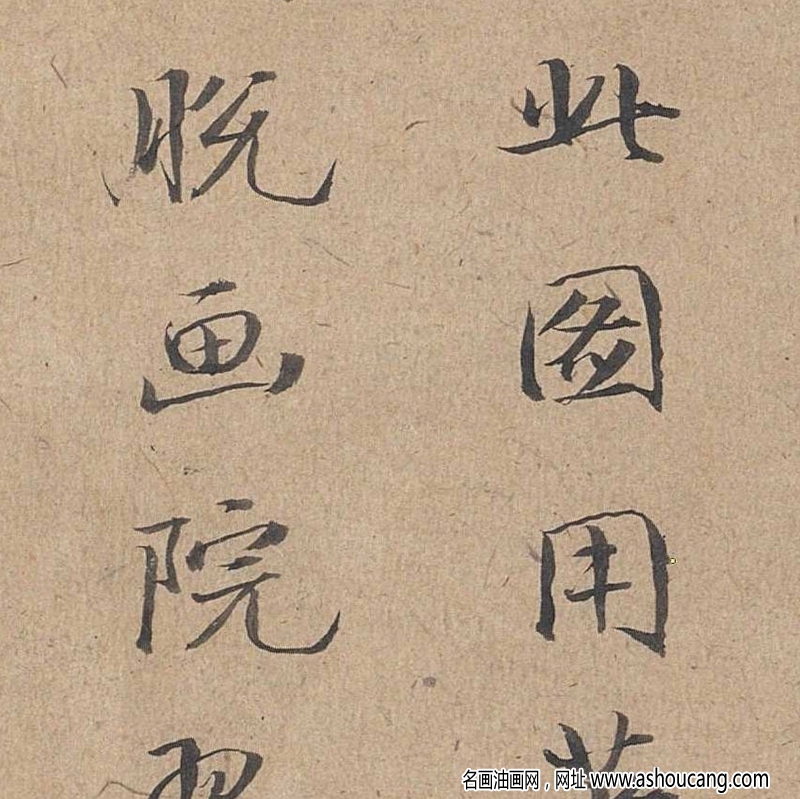 此图用
脱画院
名画油画网，网址 www.ashoucang.com